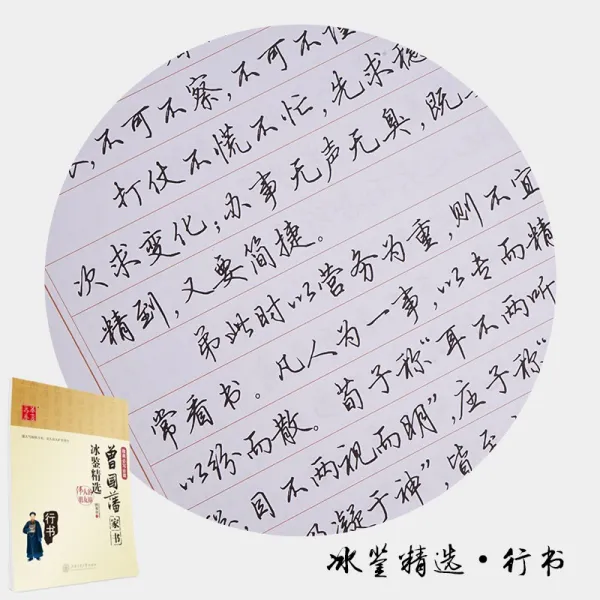 不可不察，不可不
打仗不慌不忙，先求稳
次求变化；办事无声无臭，既
精到，又要简捷。
弟此时以营务为重，则不宜
常看书。凡人为一事，以专而精
以纷而散。荀子称“耳不两听
目不两视而明”，庄子称“
凝于神”，皆至
冰鉴精选
曾國藩家书
行书
冰鉴精选·行书